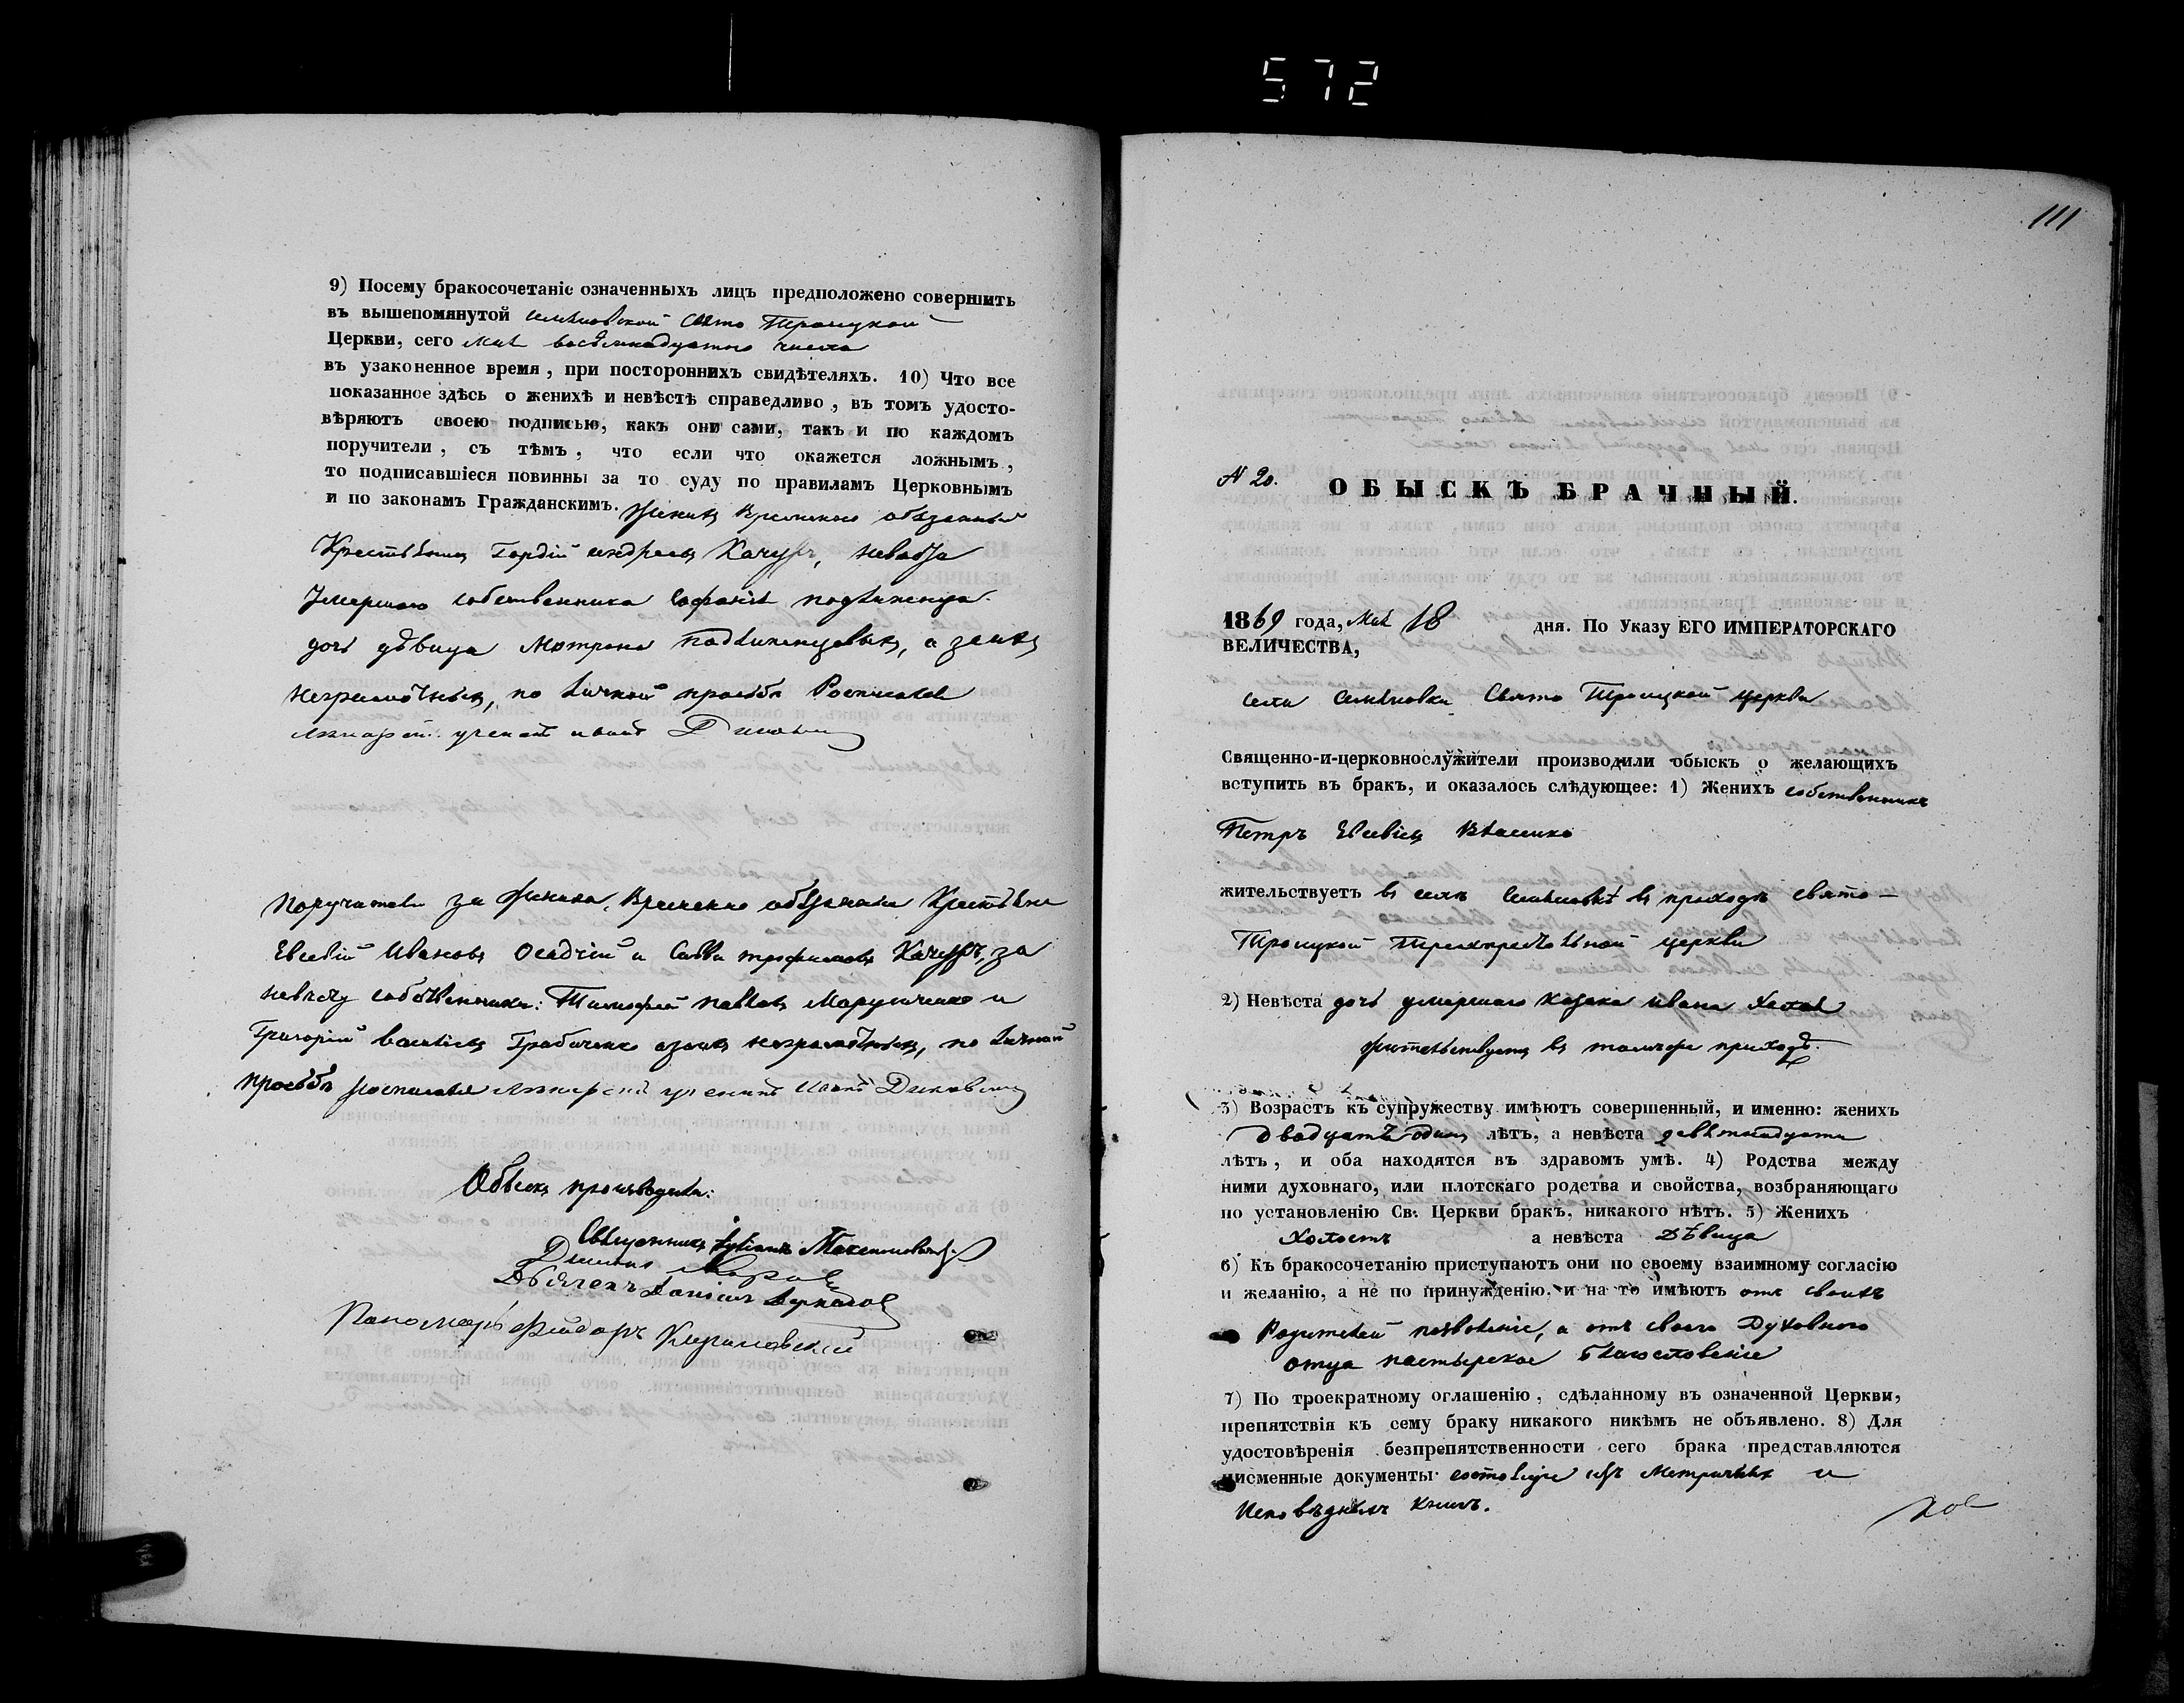 572
9) Посему бракосочетаніе означенныхъ лицъ предположено совершить
въ вышепомянутой Семіновской Свято Троицкой
Церкви, сего Мая восемнадцатаго числа
въ узаконенное время, при постороннихъ свидѣтеляхъ. 10) Что все
показанное здѣсь о женихѣ и невѣстѣ справедливо, въ томъ удосто-
вѣряютъ своею подписью, какъ они сами, такъ и по каждомъ
поручители, съ тѣмъ, что если что окажется ложнымъ,
то подписавшіеся повинны за то суду по правиламъ Церковнымъ
и по законамъ Гражданскимъ. Женихъ Временно обязанный
Крестьянинъ Гордій Андреевъ Качуръ, невѣста
Умершаго собственника
дочь дѣвица Мотрона а за ихъ
неграмотныхъ, по личной просьбѣ Росписался
Поручители за Жениха, Временно обязанные Крестьяне
Евсевій Ивановъ Осадчій и Савва Трофимовъ Качуръ, за
невѣсту собственники: Тимофей Павловъ Марусченко и
Григорій Василіевъ Грабченко а за ихъ неграмотныхъ, по личной
просьбѣ росписался
Обыскъ производили:
Священникъ Максимовичъ
Дьяченъ Даніилъ
Пономарь Фѣодоръ
111
N 20.
ОБЫСКЪ БРАЧНЫЙ.
1869 года, Мая 18 дня. По Указу ЕГО ИМПЕРАТОРСКАГО
ВЕЛИЧЕСТВА,
села Семяновки Свято Троицкой церкви
Священно-и-церковнослужители производили обыскъ о желающихъ
вступить въ бракъ, и оказалось слѣдующее: 1) Женихъ собственникъ
Петръ Евсевіевъ Власенко
жительствуетъ въ селѣ Семяновкѣ въ приходѣ Свято-
Троицкой Трехпрестольной церкви
2) Невѣста дочь умершаго Козака Ивана
жительствуетъ въ томъ же приходѣ.
3) Возрастъ къ супружеству имѣютъ совершенный, и именно: женихъ
двадцать одинъ лѣтъ, а невѣста девятнадцати
лѣтъ, и оба находятся въ здравомъ умѣ. 4) Родства между
ними духовнаго, или плотскаго родства и свойства, возбраняющаго
по установленію Св. Церкви бракъ, никакого нѣтъ. 5) Женихъ
Холостъ а невѣста Дѣвица
6) Къ бракосочетанію приступаютъ они по своему взаимному согласію
и желанію, а не по принужденію, и на то имѣютъ отъ своихъ
Родителей позволеніе, а отъ своего Духовнаго
отца пастырское благословеніе
7) По троекратному оглашенію, сдѣланному въ означенной Церкви,
препятствія къ сему браку никакого никѣмъ не объявлено. 8) Для
удостовѣренія безпрепятственности сего брака представляются
писменные документы: состоящіе изъ Метричныхъ и
Исповѣдныхъ книгъ.